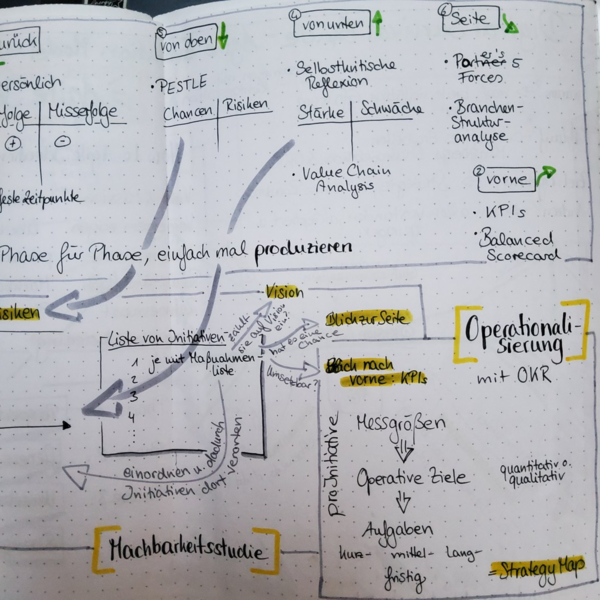 urück
③ von oben
④ von unten
④ Seite
ersönlich
folge Misserfolge
+ -
feste Zeitpunkte
• PESTLE
Chancen Risiken
• Selbstkritische
Reflexion
Stärke Schwäche
• Value Chain
Analysis
• Porter's 5
Forces
• Branchen-
Struktur-
analyse
② vorne
• KPIs
• Balanced
Scorecard
Phase für Phase, einfach mal produzieren
isiken
Vision
Liste von Initiativen
je mit Maßnahmen
liste
1
2
3
4
zahlt
sie auf Vision
ein?
hat es eine
Chance
Umsetzbar?
Blick zur Seite
Blick nach
vorne: KPIs
einordnen u. dadurch
Initiativen dort verorten
[Machbarkeitsstudie]
[Operationali-
sierung]
mit OKR
pro Initiative
Messgrößen
Operative Ziele
quantitativ o.
qualitativ
Aufgaben
kurz- mittel- lang-
fristig
= Strategy Map